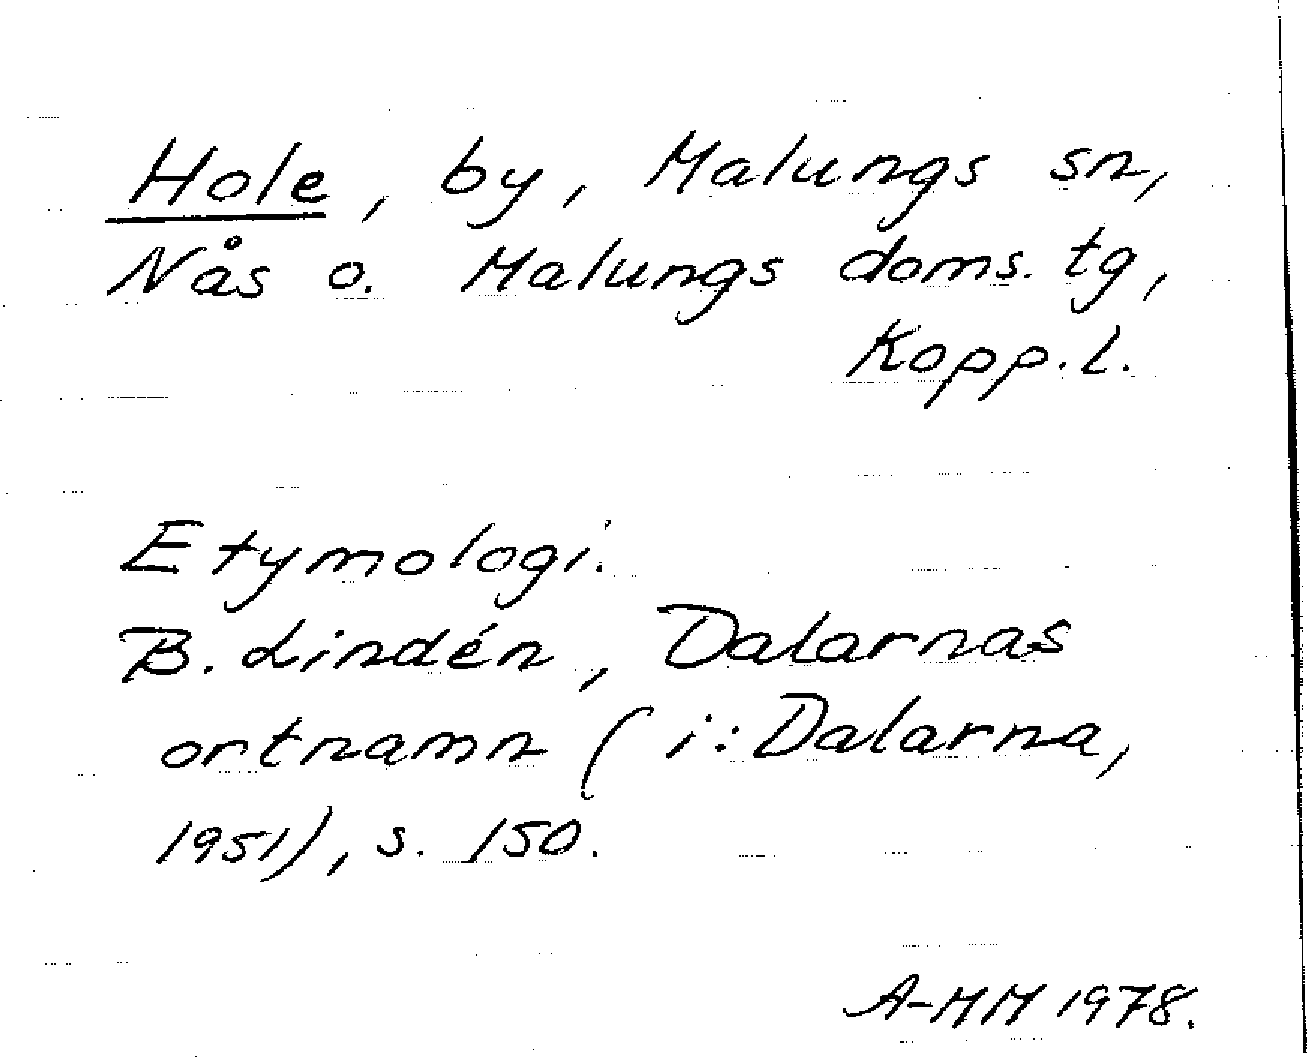 Hole, by, Malungs sn,
Nås o. Malungs doms. tg,
Kopp.l.
Etymologi.
B. Lindén, Dalarnas
ortnamn (i: Dalarna,
1951), s. 150.
A-MM 1978.